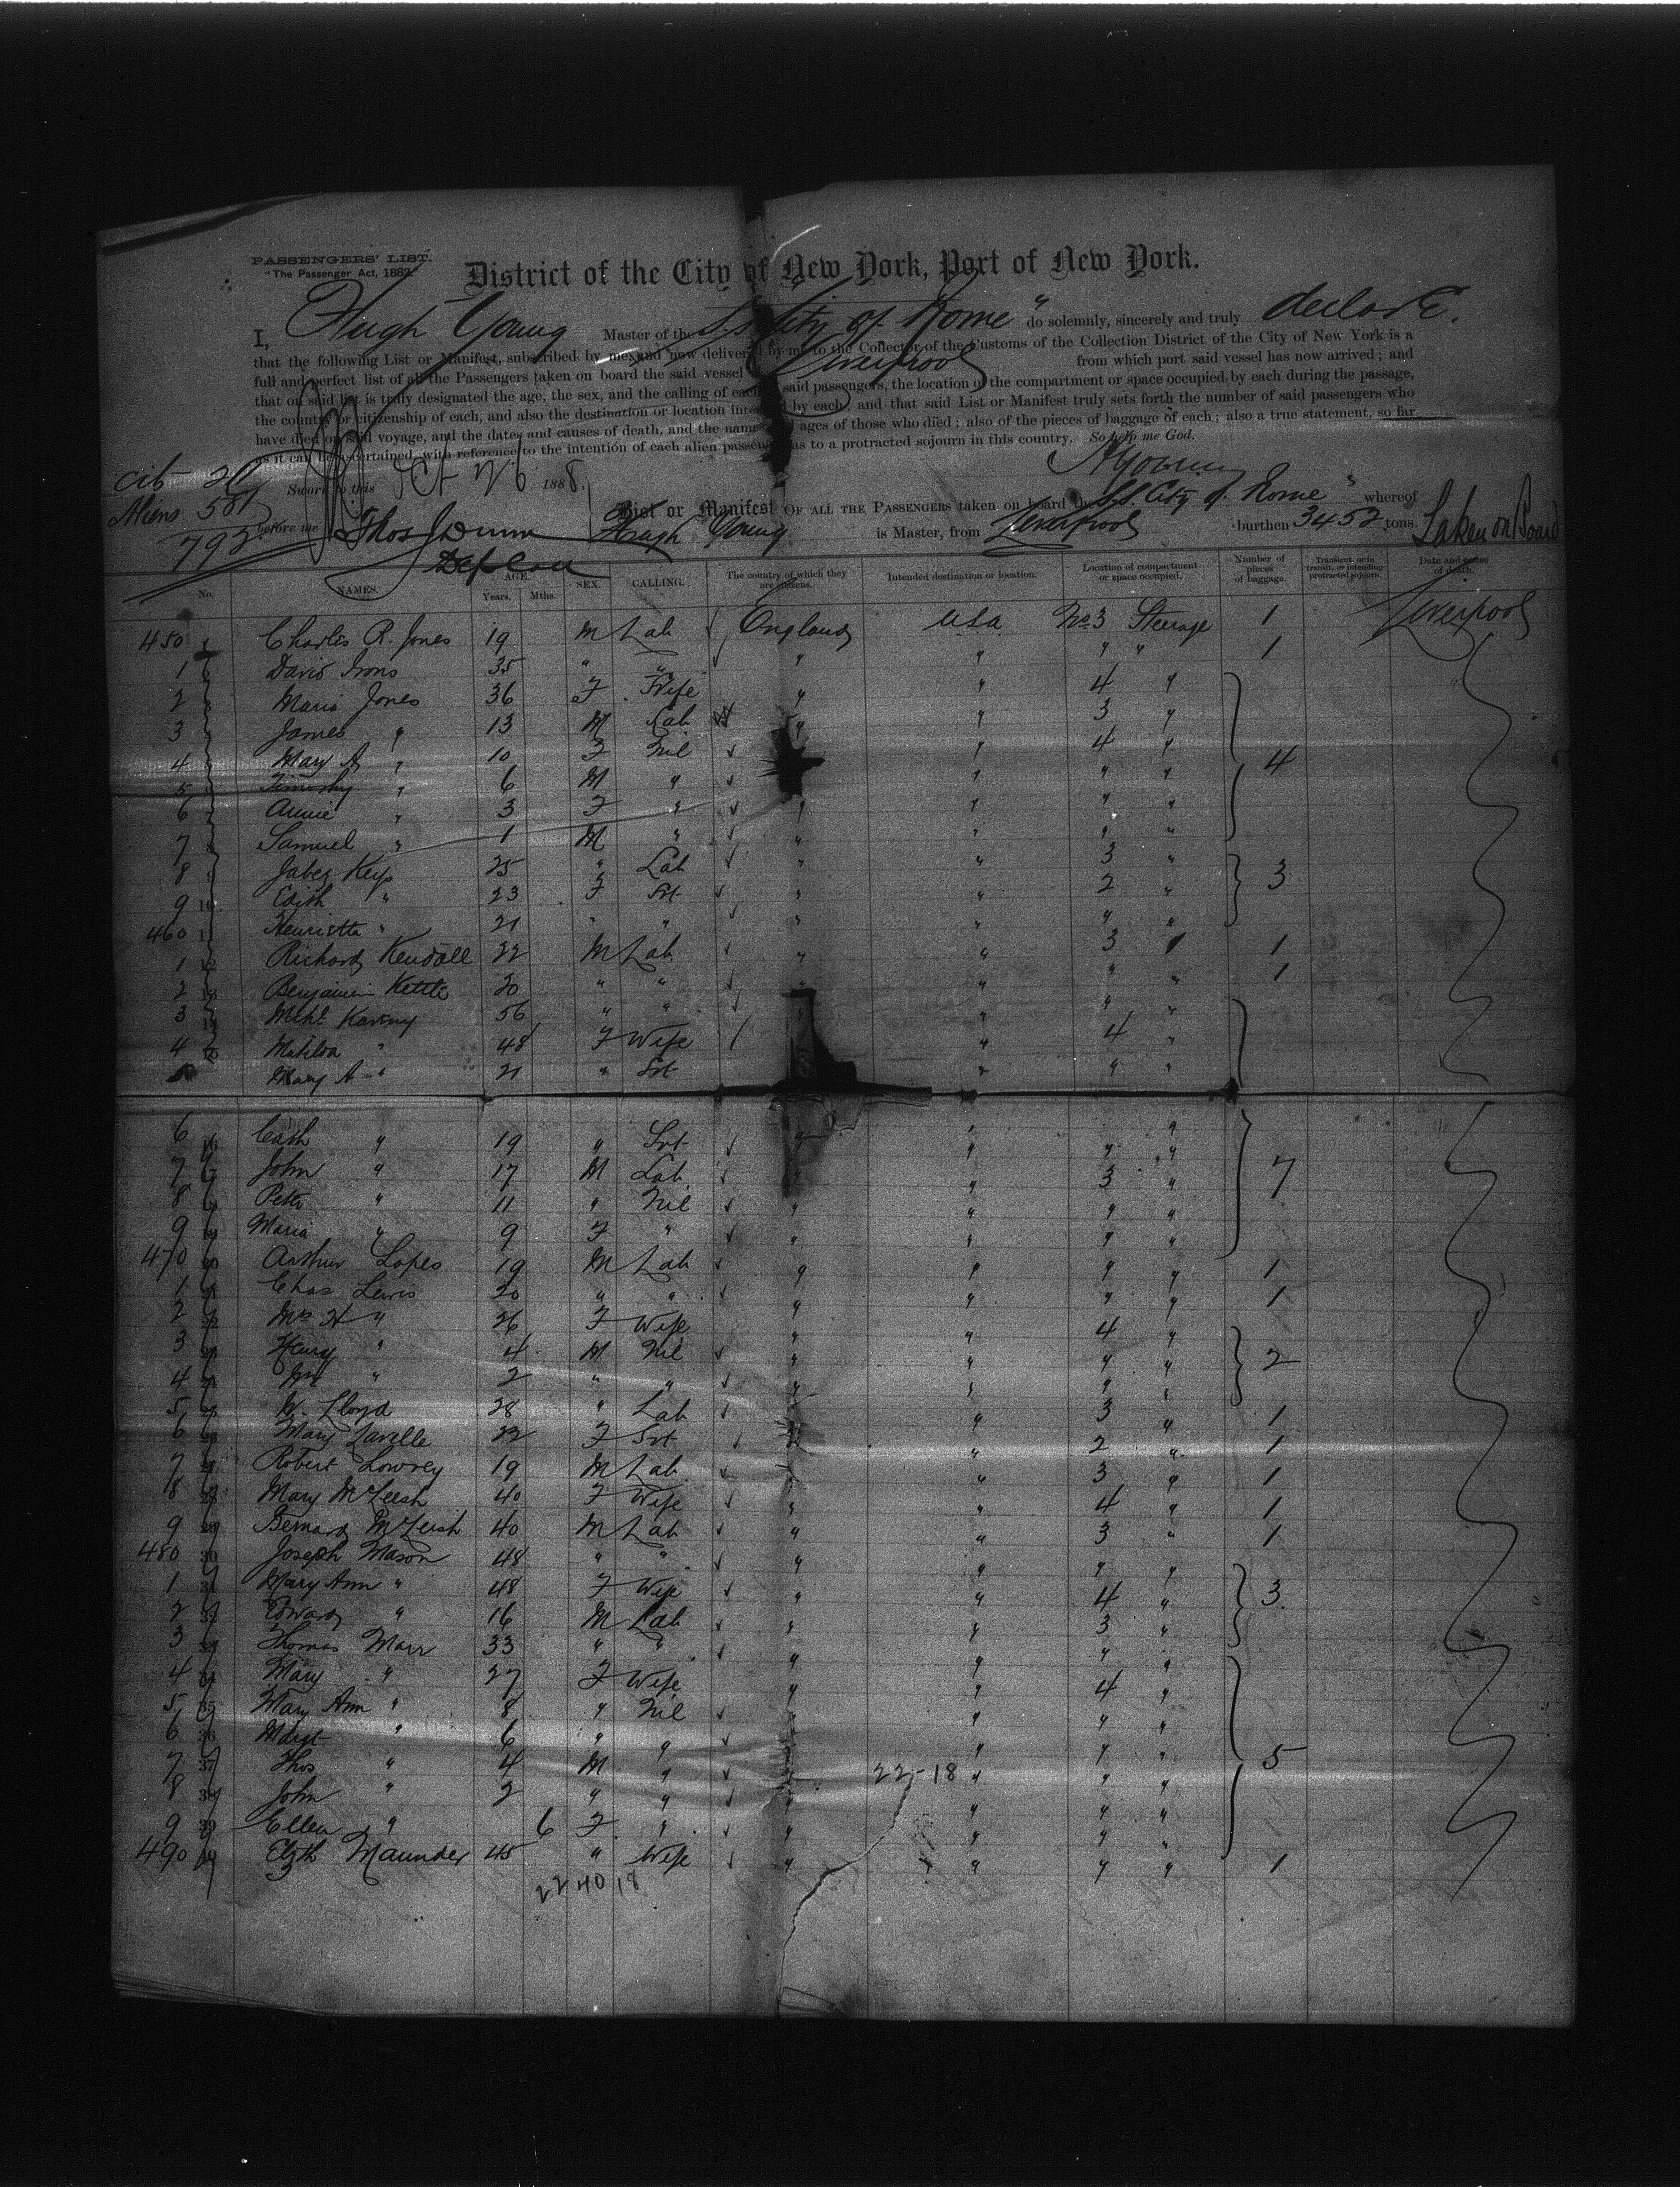 PASSENGERS' LIST.
"The Passenger Act, 1882."
District of the City of New York, Port of New York.
I, Hugh Young Master of the S.S. "City of Rome" do solemnly, sincerely and truly declare.
that the following List or Manifest, subscribed by me, and now delivered by me to the Collector of the Customs of the Collection District of the City of New York is a
full and perfect list of all the Passengers taken on board the said vessel Liverpool from which port said vessel has now arrived; and
that on said list is truly designated the age, the sex, and the calling of each said passengers, the location of the compartment or space occupied by each during the passage,
the country or citizenship of each, and also the destination or location intended by each; and that said List or Manifest truly sets forth the number of said passengers who
have died on said voyage, and the dates and causes of death, and the names ages of those who died; also of the pieces of baggage of each; also a true statement, so far
as it can be ascertained, with reference to the intention of each alien passenger as to a protracted sojourn in this country. So help me God.
HYoung
Cit
Aliens 581
792
Sworn to this Oct 26 1888.
before me Thos J Dunn
Dep Coll
List or Manifest OF ALL THE PASSENGERS taken on board the SS. City of Rome" whereof
Hugh Young is Master, from Liverpool burthen 3452 tons. Taken on Board
No. NAMES. AGE. Years. Mths. SEX. CALLING. The country of which they are citizens. Intended destination or location. Location of compartment or space occupied. Number of pieces of baggage. Transient or in transit, or intending protracted sojourn. Date and cause of death.
450 1 Charles R. Jones 19 M Lab England USA No 3 Steerage 1 Liverpool
1 David Irons 35 " " " " " " 1
2 Maria Jones 36 F Wife " " 4 "
3 James " 13 M Lab " " 3 "
4 Mary A " 10 F Nil " " 4 " 4
5 Timothy " 6 M " " " " "
6 Annie " 3 F " " " " "
7 Samuel " 1 M " " " " "
8 Jabez Keys 25 " Lab " " 3 " 3
9 10 Edith " 23 F Srt " " 2 "
460 11 Henrietta " 21 " " " " " "
1 12 Richard Kendall 22 M Lab " " 3 " 1
2 13 Benjamin Kettle 20 " " " " " " 1
3 14 Mchl Kaveny 56 " " " " "
4 Matilda " 48 F Wife " 4 "
5 Mary A " 21 " Srt " " "
6 16 Cath " 19 " Srt " " " "
7 John " 17 M Lab " " 3 " 7
8 Peter " 11 " Nil " " " "
9 Maria " 9 F " " " " "
470 20 Arthur Lopes 19 M Lab " " " " 1
1 Chas Lewis 20 " " " " " " 1
2 Mrs H " 26 F Wife " " 4 "
3 Henry " 4 M Nil " " " " 2
4 Wm " 2 " " " " " "
5 W. Lloyd 28 " Lab " " 3 " 1
6 Mary Lavelle 22 F Srt " " 2 " 1
7 Robert Lowrey 19 M Lab " " 3 " 1
8 Mary McLeish 40 F Wife " " 4 " 1
9 Bernard McLeish 40 M Lab " " 3 " 1
480 30 Joseph Mason 48 " " " " " "
1 31 Mary Ann " 48 F Wife " " 4 " 3
2 Edward " 16 M Lab " " 3 "
3 Thomas Marr 33 " " " " " "
4 Mary " 27 F Wife " " 4 "
5 35 Mary Ann " 8 " Nil " " " "
6 36 Margt " 6 " " " " " " 5
7 37 Thos " 4 M " " 22-18 " " "
8 38 John " 2 " " " " " "
9 39 Ellen " 6 F " " " " "
490 Elzth Maunder 45 " Wife " " " " 1
22 40 18